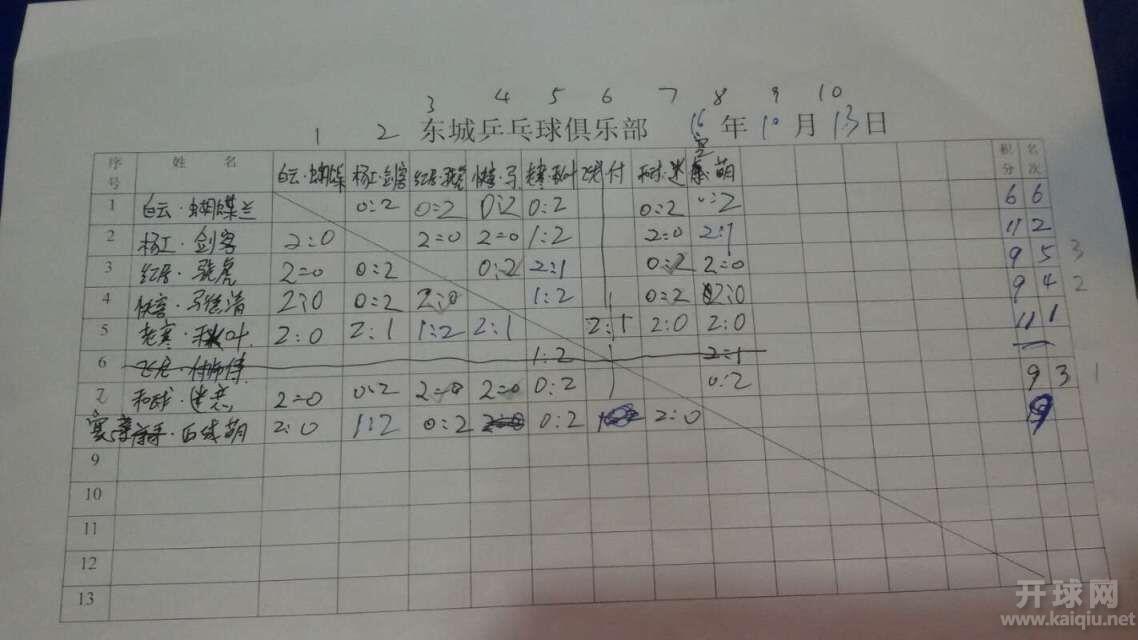 3 4 5 6 7 8 9 10
1 2 东城乒乓球俱乐部 16年10月13日
序号 姓名 白云·蝴蝶 杨工·剑客 快客·马 积分 名次
1 白云·蝴蝶兰 0:2 0:2 0:2 0:2 0:2 0:2 6 6
2 杨工·剑客 2:0 2=0 2=0 1:2 2:0 2:1 11 2
3 2=0 0:2 0:2 2:1 0:2 2=0 9 5 3
4 快客·马 2:0 0:2 2:0 1:2 0:2 2:0 9 4 2
5 老寒·秋叶 2:0 2:1 1:2 2:1 2:1 2:0 2:0 11 1
6 1:2 2=1
7 2=0 0:2 2=0 2=0 0:2 0:2 9 3 1
2:0 1:2 0:2 0:2 2:0 9
9
10
11
12
13
开球网
www.kaiqiu.net